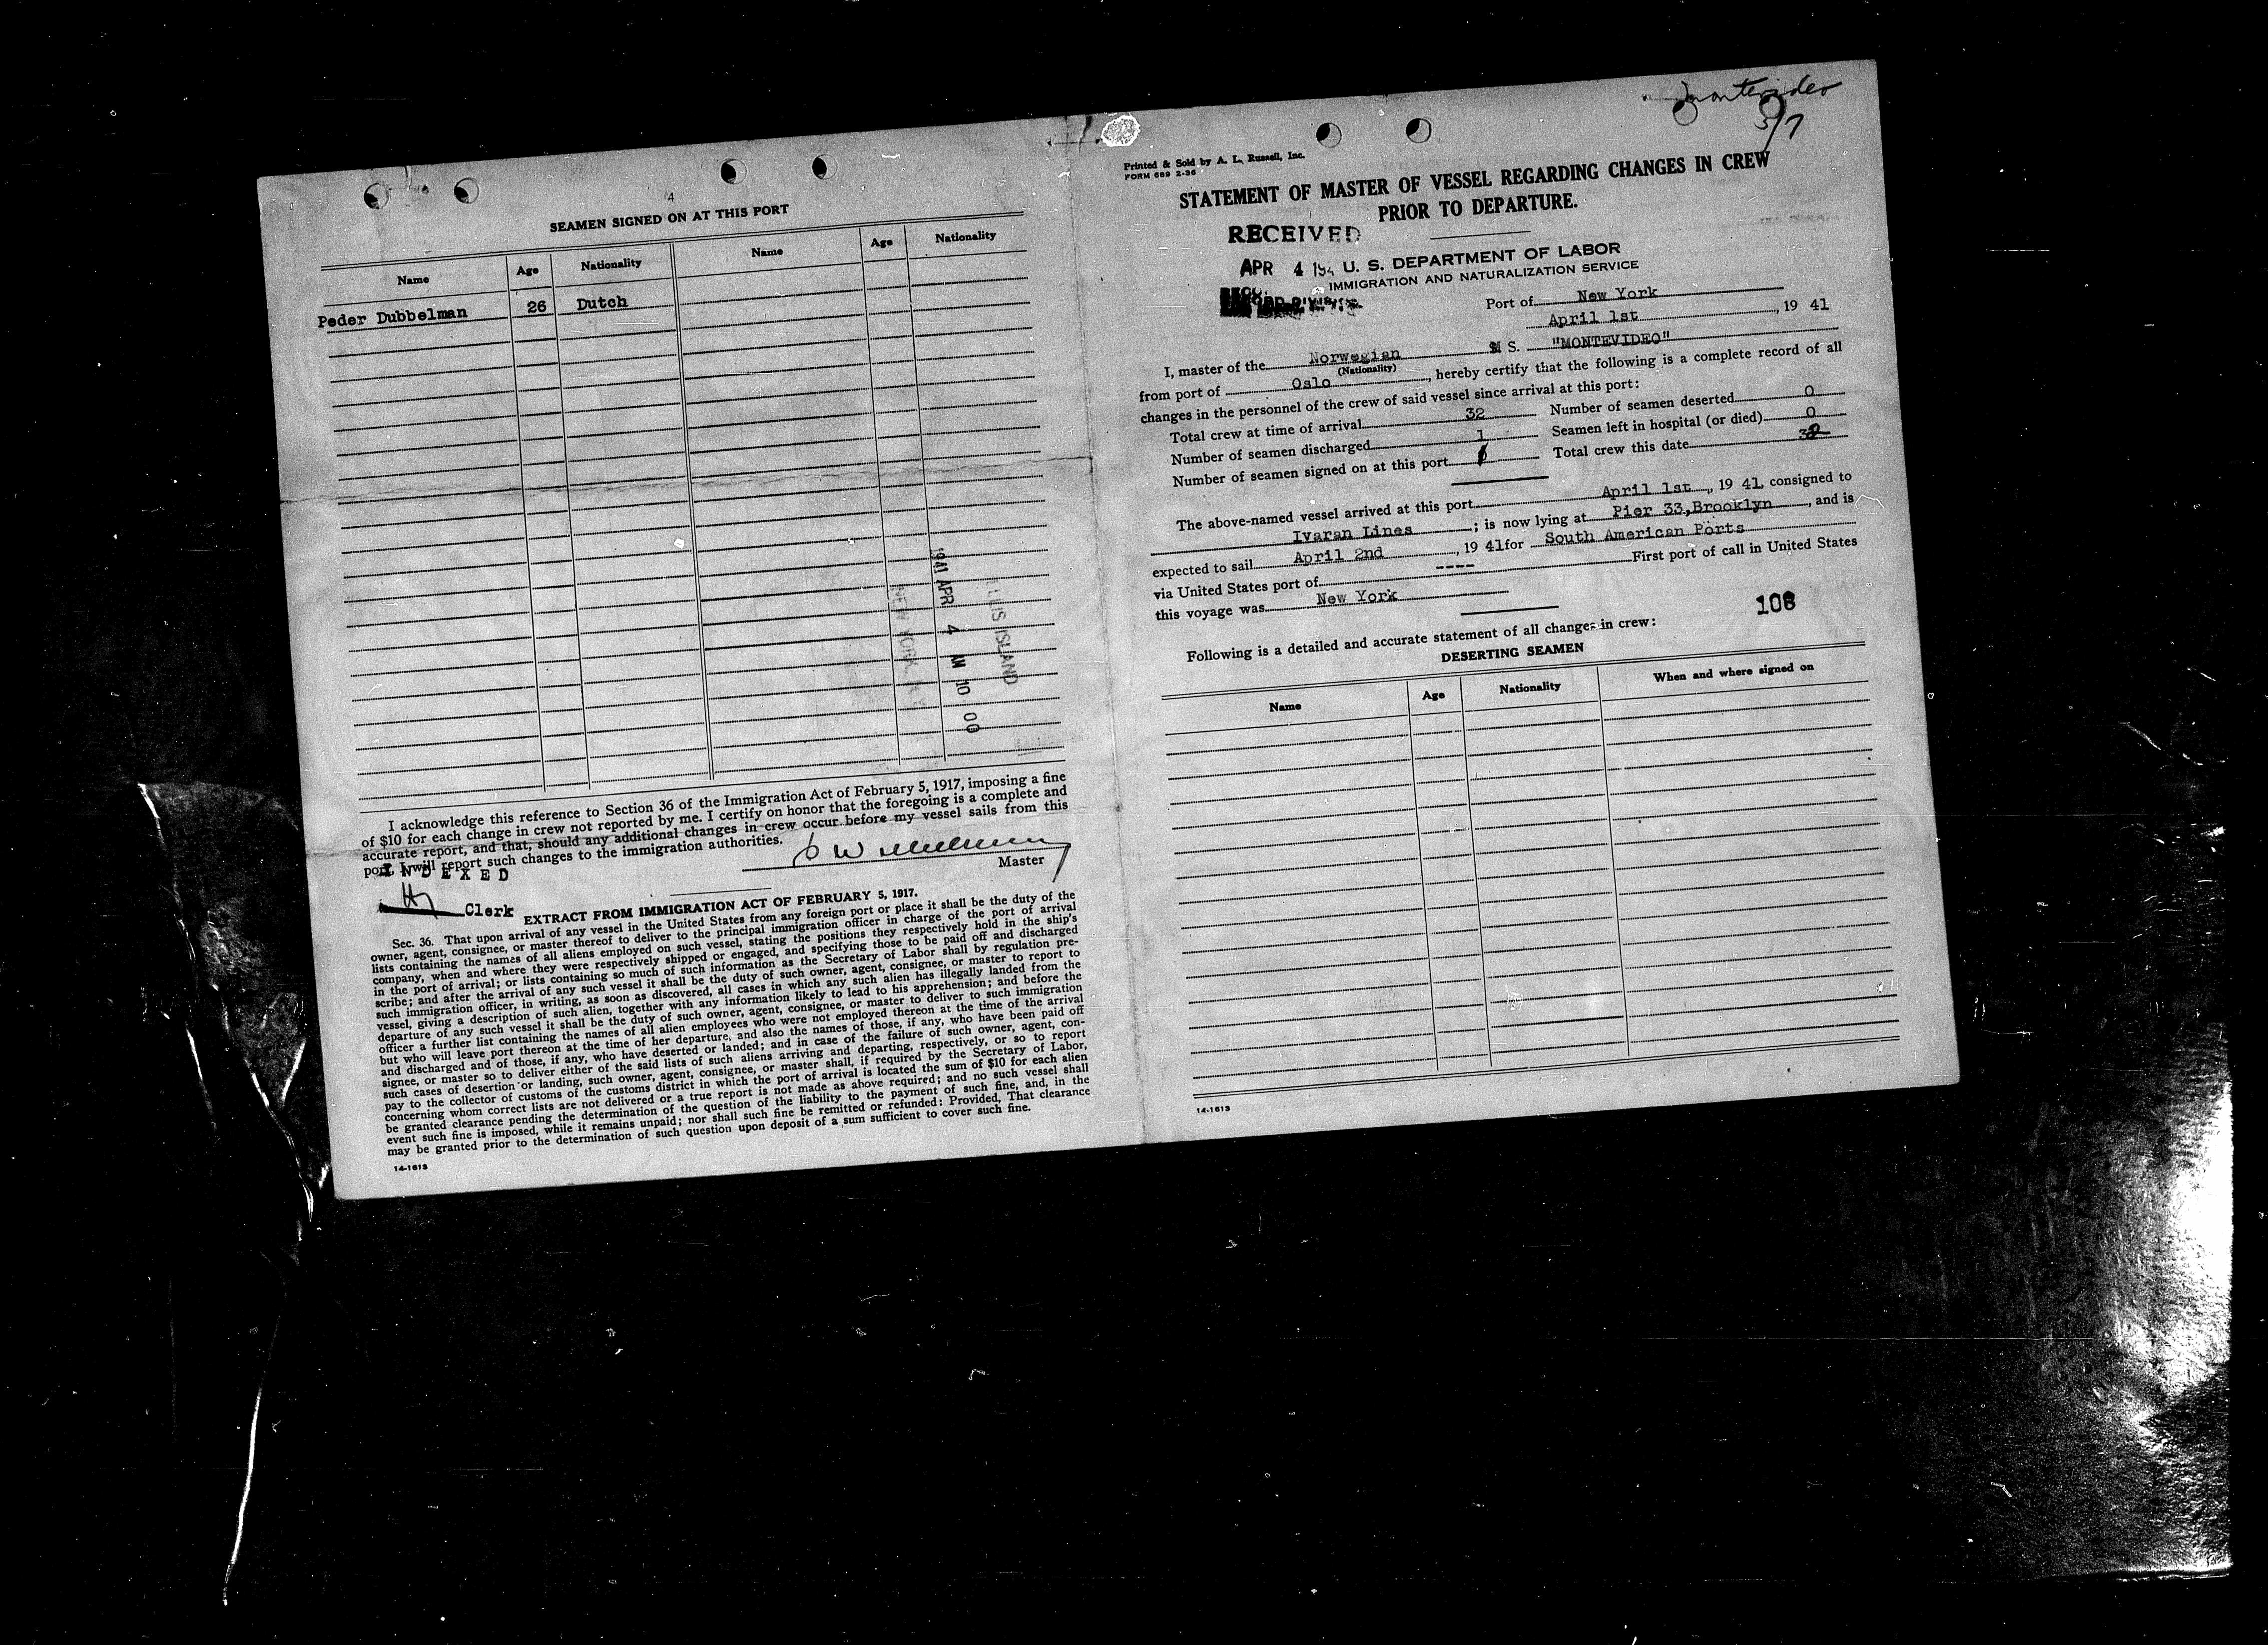 4
SEAMEN SIGNED ON AT THIS PORT
Name Age Nationality Name Age Nationality
Peder Dubbelman 26 Dutch
ELLIS ISLAND
1941 APR 4 AM 10 00
NEW YORK
I acknowledge this reference to Section 36 of the Immigration Act of February 5, 1917, imposing a fine
of $10 for each change in crew not reported by me. I certify on honor that the foregoing is a complete and
accurate report, and that, should any additional changes in crew occur before my vessel sails from this
port, I will report such changes to the immigration authorities.
Master
INDEXED
Clerk
EXTRACT FROM IMMIGRATION ACT OF FEBRUARY 5, 1917.
Sec. 36. That upon arrival of any vessel in the United States from any foreign port or place it shall be the duty of the
owner, agent, consignee, or master thereof to deliver to the principal immigration officer in charge of the port of arrival
lists containing the names of all aliens employed on such vessel, stating the positions they respectively hold in the ship's
company, when and where they were respectively shipped or engaged, and specifying those to be paid off and discharged
in the port of arrival; or lists containing so much of such information as the Secretary of Labor shall by regulation pre-
scribe; and after the arrival of any such vessel it shall be the duty of such owner, agent, consignee, or master to report to
such immigration officer, in writing, as soon as discovered, all cases in which any such alien has illegally landed from the
vessel, giving a description of such alien, together with any information likely to lead to his apprehension; and before the
departure of any such vessel it shall be the duty of such owner, agent, consignee, or master to deliver to such immigration
officer a further list containing the names of all alien employees who were not employed thereon at the time of the arrival
but who will leave port thereon at the time of her departure, and also the names of those, if any, who have been paid off
and discharged and of those, if any, who have deserted or landed; and in case of the failure of such owner, agent, con-
signee, or master so to deliver either of the said lists of such aliens arriving and departing, respectively, or so to report
such cases of desertion or landing, such owner, agent, consignee, or master shall, if required by the Secretary of Labor,
pay to the collector of customs of the customs district in which the port of arrival is located the sum of $10 for each alien
concerning whom correct lists are not delivered or a true report is not made as above required; and no such vessel shall
be granted clearance pending the determination of the question of the liability to the payment of such fine, and, in the
event such fine is imposed, while it remains unpaid; nor shall such fine be remitted or refunded: Provided, That clearance
may be granted prior to the determination of such question upon deposit of a sum sufficient to cover such fine.
14-1613
Montevideo
5/7
Printed & Sold by A. L. Russell, Inc.
FORM 689 2-36
STATEMENT OF MASTER OF VESSEL REGARDING CHANGES IN CREW
PRIOR TO DEPARTURE.
RECEIVED
APR 4 194
U. S. DEPARTMENT OF LABOR
IMMIGRATION AND NATURALIZATION SERVICE
Port of New York
April 1st, 19 41
I, master of the Norwegian M S. "MONTEVIDEO"
(Nationality)
from port of Oslo, hereby certify that the following is a complete record of all
changes in the personnel of the crew of said vessel since arrival at this port:
Total crew at time of arrival 32 Number of seamen deserted 0
Number of seamen discharged 1 Seamen left in hospital (or died) 0
Number of seamen signed on at this port Total crew this date
The above-named vessel arrived at this port April 1st, 19 41, consigned to
Ivaran Lines; is now lying at Pier 33, Brooklyn, and is
expected to sail April 2nd, 19 41 for South American Ports
via United States port of ---- First port of call in United States
this voyage was New York
108
Following is a detailed and accurate statement of all changes in crew:
DESERTING SEAMEN
Name Age Nationality When and where signed on
14-1613